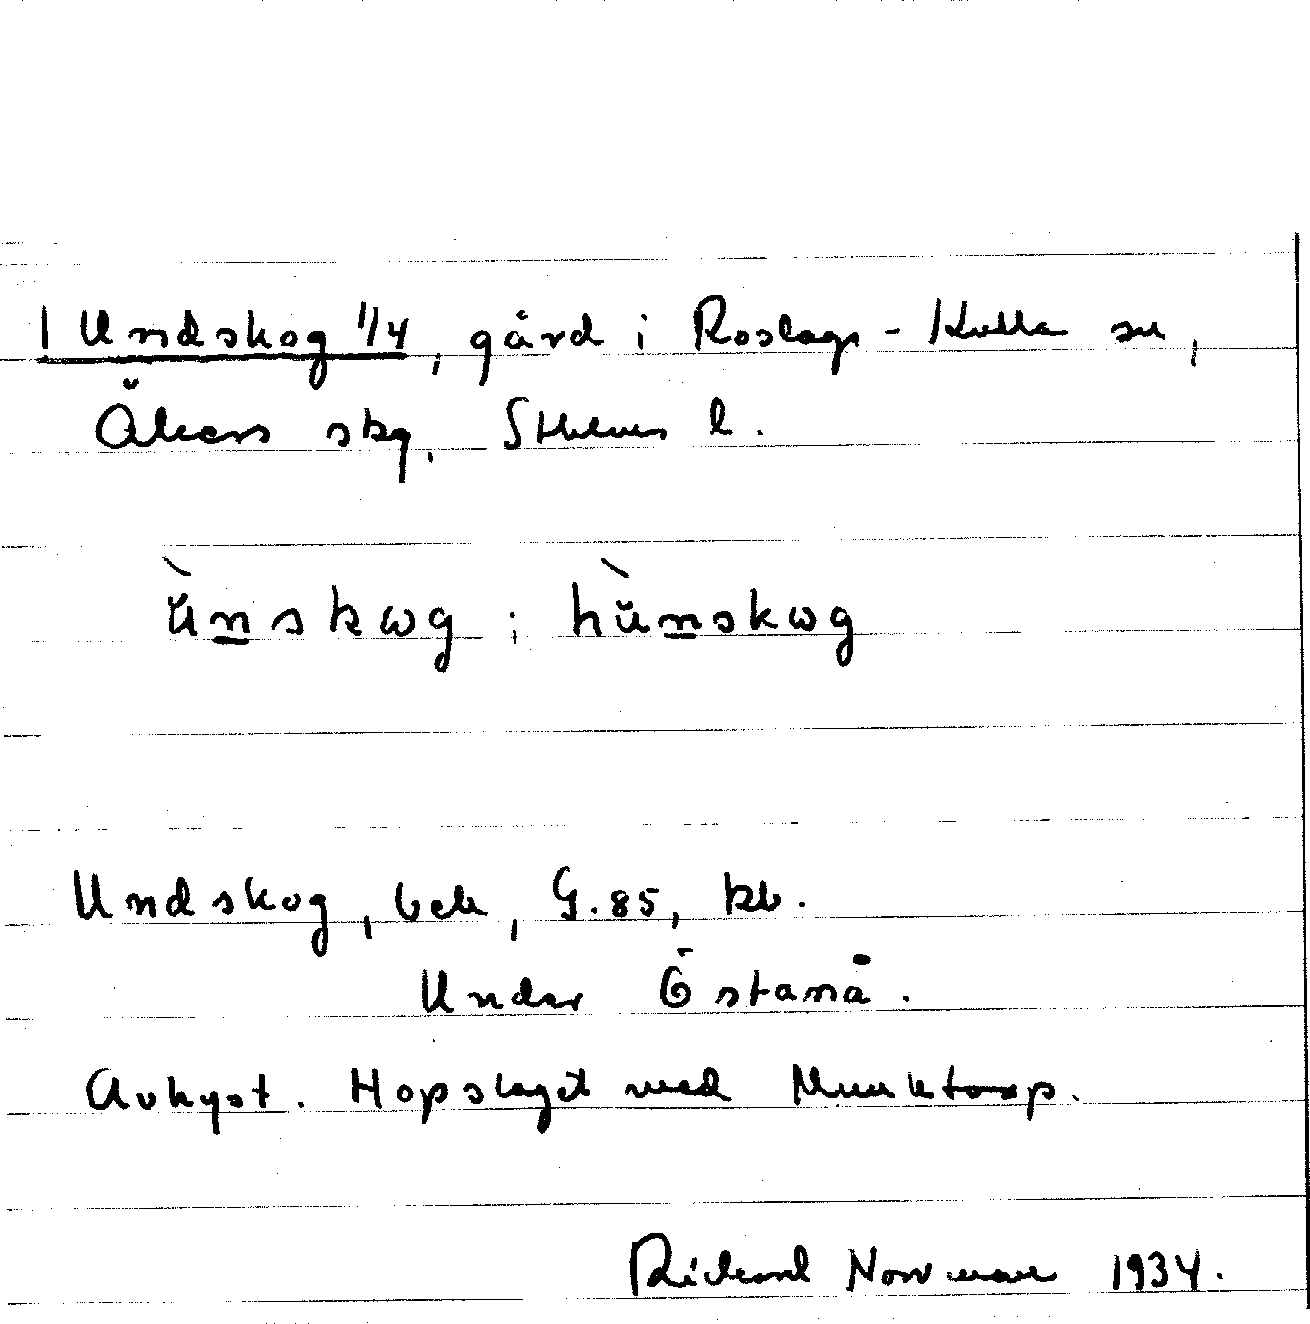 1 Undskog 1/4, gård i Roslags-Kulla sn,
Åkers skg. Sthlms l.
ùnskωg ; hùnskωg
Undskog, beb, G.85, kb.
Under Östanå.
Avhyst. Hopslaget med Munktorp.
Richard Norrman 1934.